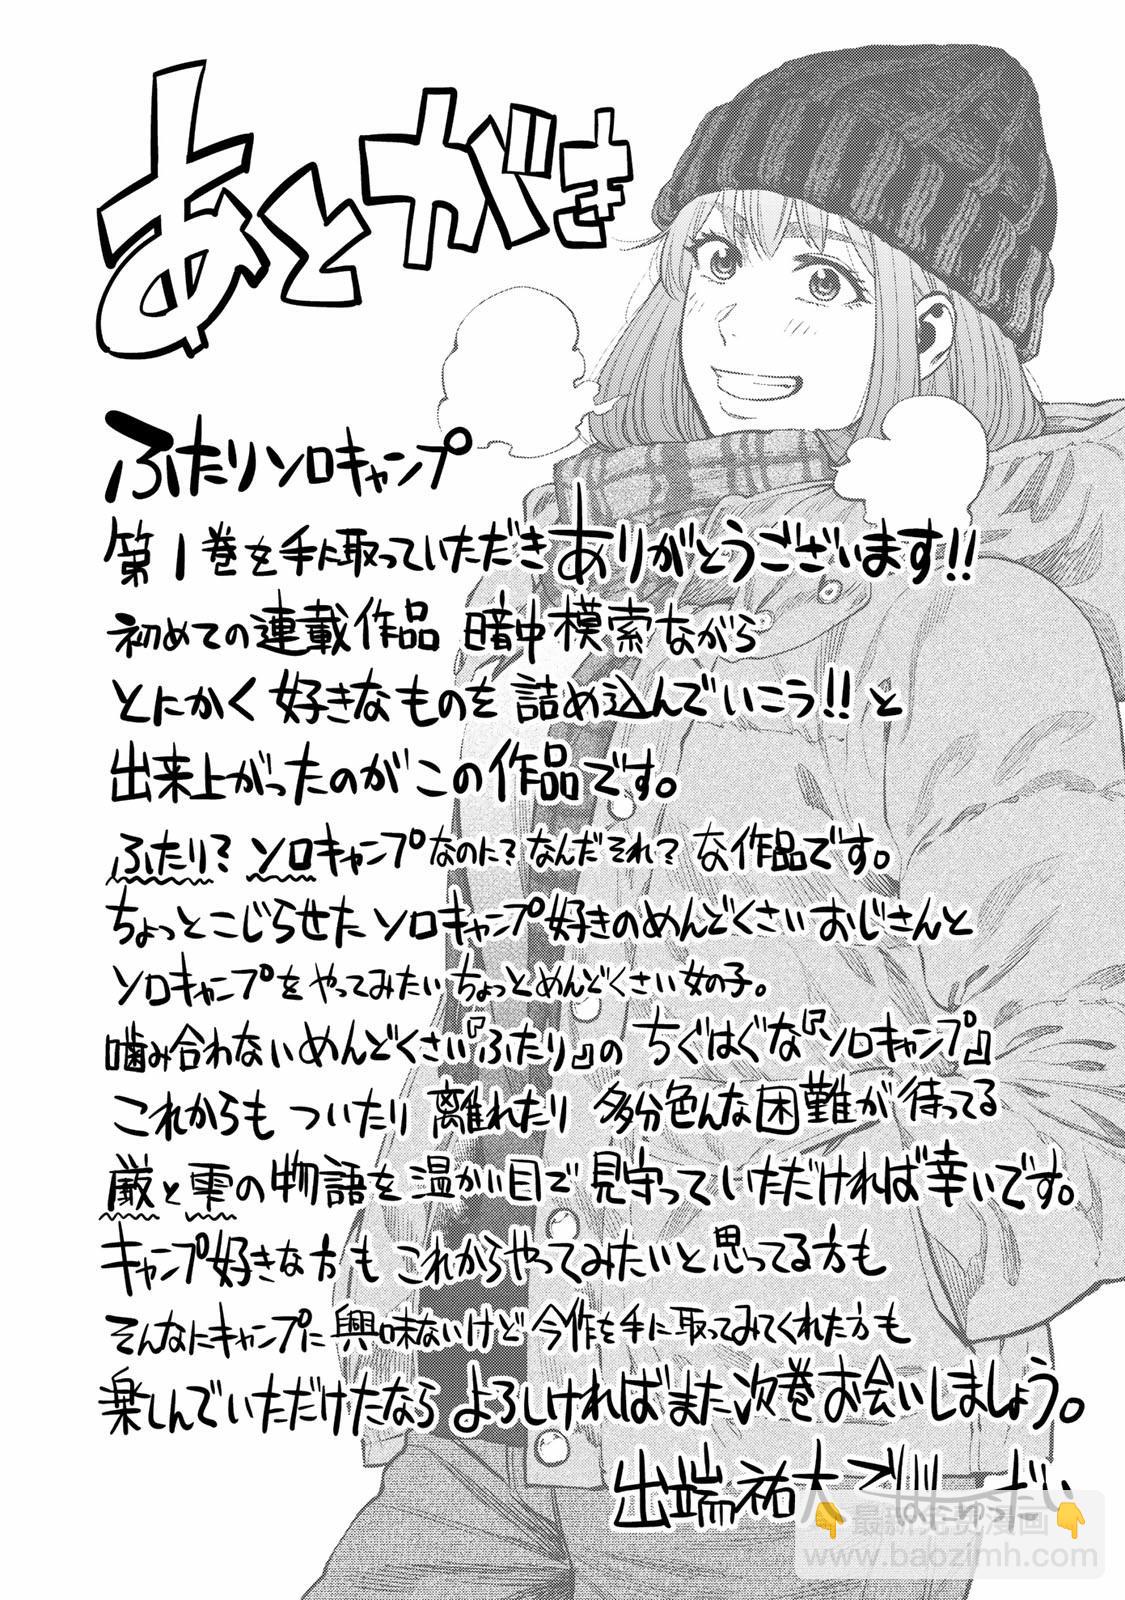 あとがき
ふたりソロキャンプ
第1巻を手に取っていただきありがとうございます!!
初めての連載作品 暗中模索ながら
とにかく好きなものを詰め込んでいこう!!と
出来上がったのがこの作品です。
ふたり?ソロキャンプなのに?なんだそれ?な作品です。
ちょっとこじらせたソロキャンプ好きのめんどくさいおじさんと
ソロキャンプをやってみたいちょっとめんどくさい女の子。
噛み合わないめんどくさい『ふたり』のちぐはぐな『ソロキャンプ』
これからもついたり離れたり多分色んな困難が待ってる
厳と雫の物語を温かい目で見守っていただければ幸いです。
キャンプ好きな方もこれからやってみたいと思ってる方も
そんなにキャンプに興味ないけど今作を手に取ってみてくれた方も
楽しんでいただけたならよろしければまた次巻お会いしましょう。
出端祐大 でばた
最新完免漫画
www.baozimh.com